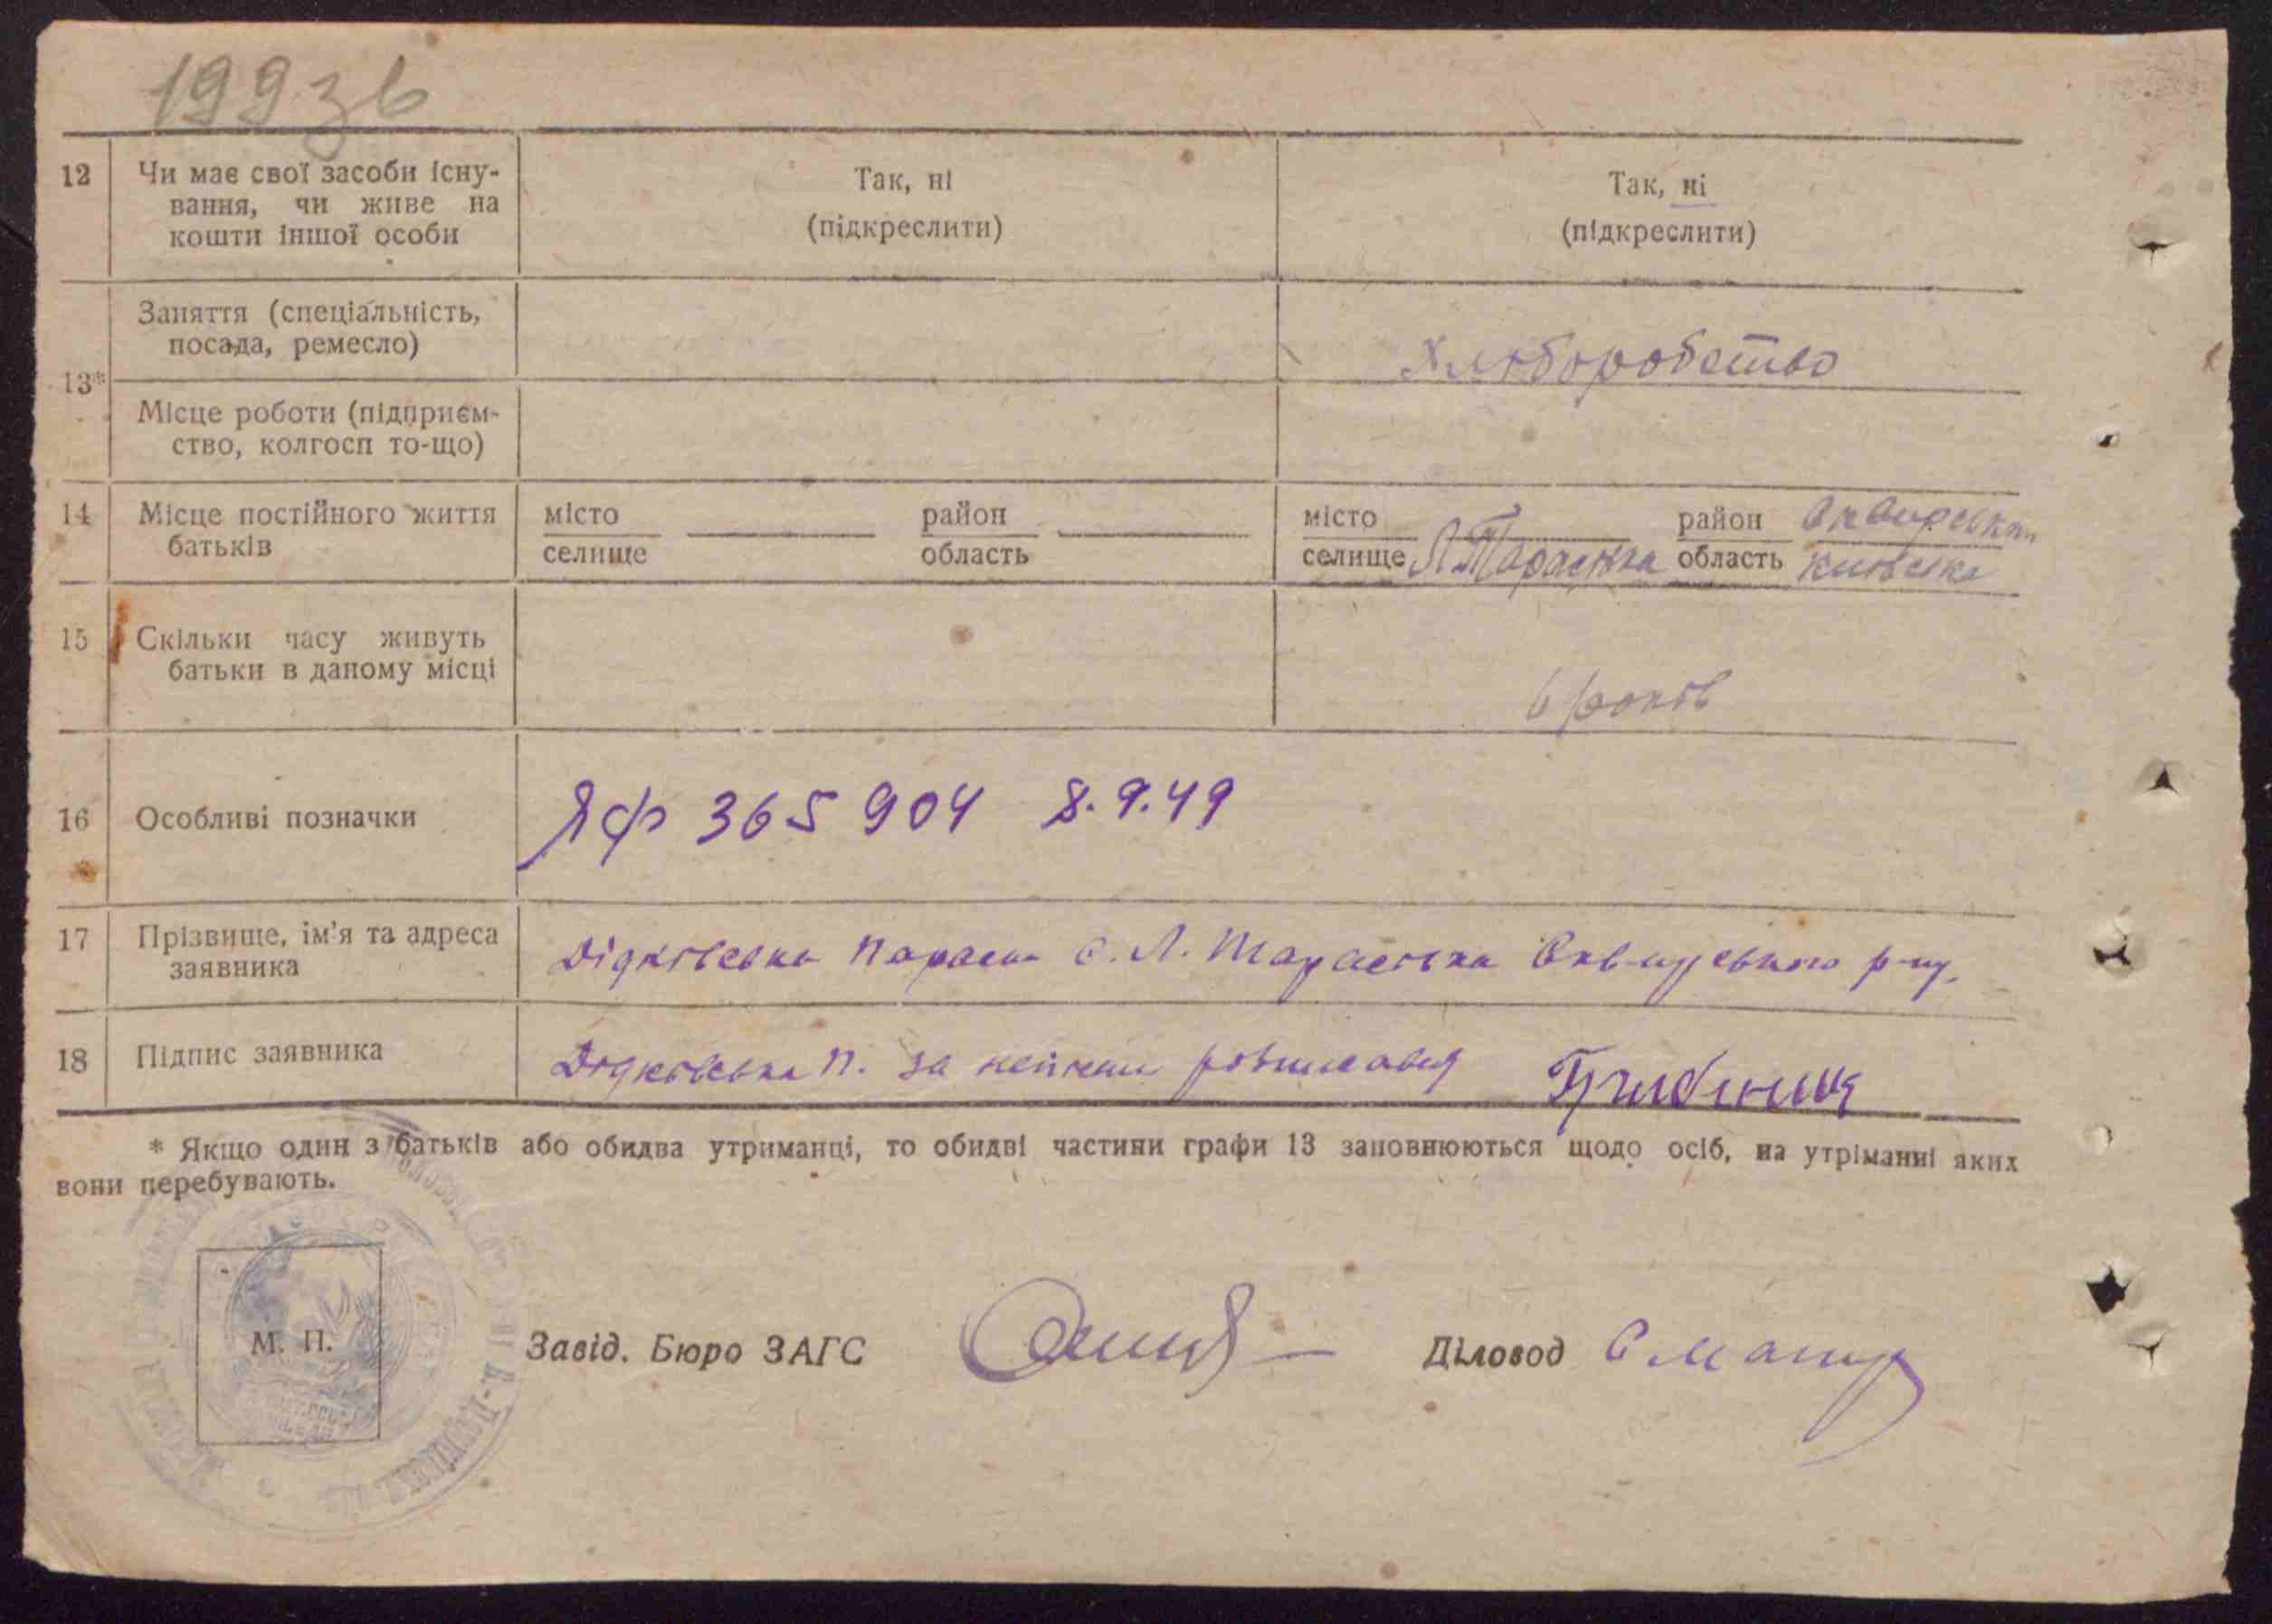 199зв
12 Чи має свої засоби існу-
вання, чи живе на
кошти іншої особи
Так, ні
(підкреслити)
Так, ні
(підкреслити)
13*
Заняття (спеціальність,
посада, ремесло)
Хліборобство
Місце роботи (підприєм-
ство, колгосп то-що)
14 Місце постійного життя
батьків
місто
селище
район
область
місто
селище Л. Тарасівка
район Сквирськ.
область Київська
15 Скільки часу живуть
батьки в даному місці
6 років
16 Особливі позначки
ЯФ 365904 8.9.49
17 Прізвище, ім'я та адреса
заявника
Дідківська Параска с. Л. Тарасівка Сквирського р-ну.
18 Підпис заявника
Дідківська П. за неписьм розписався
* Якщо один з батьків або обидва утриманці, то обидві частини графи 13 заповнюються щодо осіб, на утріманні яких
вони перебувають.
М. П.
Завід. Бюро ЗАГС
Діловод